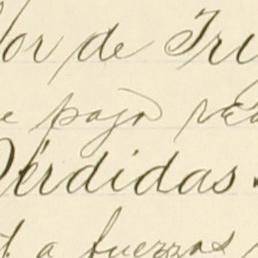 or de Tri
e pago rea
Pérdidas.
t a fuerzas